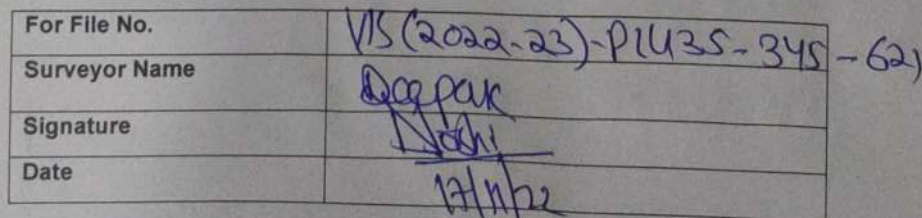 For File No. VIS(2022-23)-PL435-345-621
Surveyor Name Deepak
Signature Joshi
Date 17/11/22